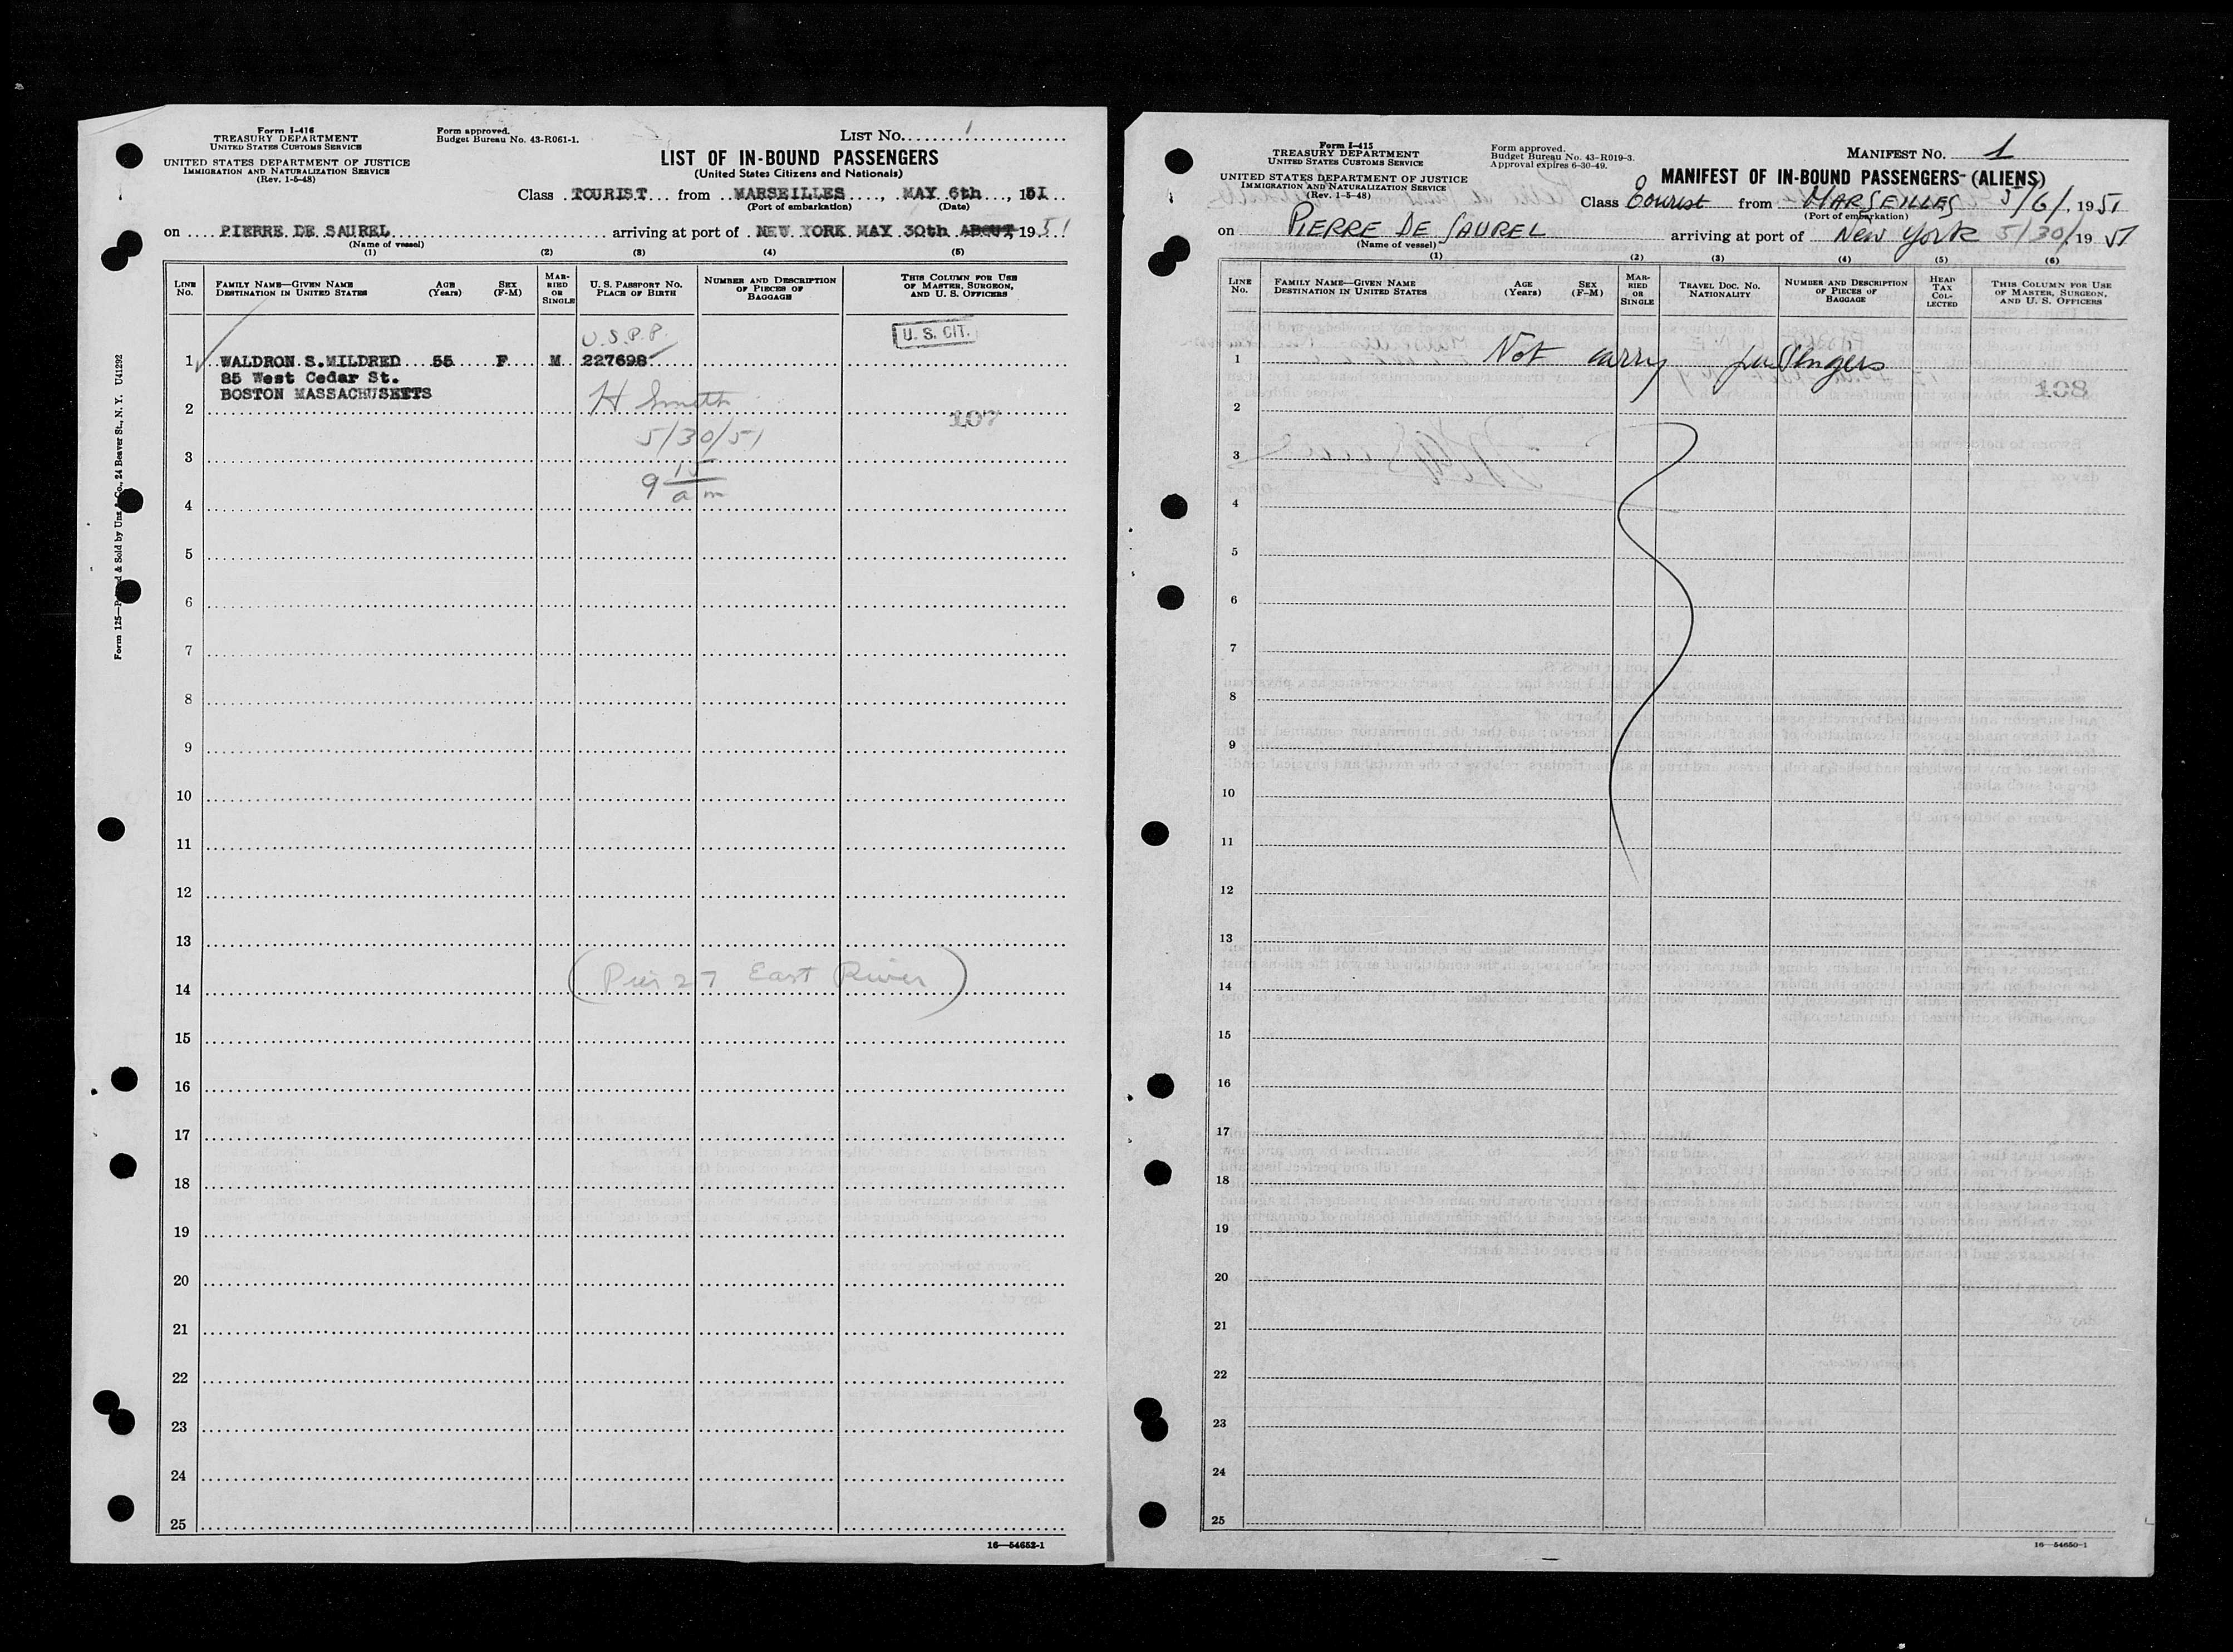 Form I-416
TREASURY DEPARTMENT
UNITED STATES CUSTOMS SERVICE
UNITED STATES DEPARTMENT OF JUSTICE
IMMIGRATION AND NATURALIZATION SERVICE
(Rev. 1-5-48)
Form approved.
Budget Bureau No. 43-R061-1.
LIST No. 1
LIST OF IN-BOUND PASSENGERS
(United States Citizens and Nationals)
Class TOURIST from MARSEILLES, MAY 6th, 1951
(Port of embarkation) (Date)
on PIERRE DE SAUREL arriving at port of NEW YORK MAY 30th ABOUT 1951
(Name of vessel)
(1) (2) (3) (4) (5)
LINE No. FAMILY NAME—GIVEN NAME DESTINATION IN UNITED STATES AGE (Years) SEX (F-M) MARRIED OR SINGLE U. S. PASSPORT NO. PLACE OF BIRTH NUMBER AND DESCRIPTION OF PIECES OF BAGGAGE THIS COLUMN FOR USE OF MASTER, SURGEON, AND U. S. OFFICERS
U.S.P.P.
U. S. CIT.
1 WALDRON S. MILDRED 55 F M 227698
85 West Cedar St.
BOSTON MASSACHUSETTS
2 H Smith 107
5/30/51
3
9 15 am
4
5
6
7
8
9
10
11
12
13
(Pier 27 East River)
14
15
16
17
18
19
20
21
22
23
24
25
16—54652-1
Form 125—Printed & Sold by Unz & Co., 24 Beaver St., N. Y. U41292
Form I-415
TREASURY DEPARTMENT
UNITED STATES CUSTOMS SERVICE
UNITED STATES DEPARTMENT OF JUSTICE
IMMIGRATION AND NATURALIZATION SERVICE
(Rev. 1-5-48)
Form approved.
Budget Bureau No. 43-R019-3.
Approval expires 6-30-49.
MANIFEST No. 1
MANIFEST OF IN-BOUND PASSENGERS (ALIENS)
Class Tourist from MARSEILLES 5/6/, 1951
(Port of embarkation)
on PIERRE DE SAUREL arriving at port of New York 5/30/1951
(Name of vessel)
(1) (2) (3) (4) (5) (6)
LINE No. FAMILY NAME—GIVEN NAME DESTINATION IN UNITED STATES AGE (Years) SEX (F-M) MARRIED OR SINGLE TRAVEL DOC. NO. NATIONALITY NUMBER AND DESCRIPTION OF PIECES OF BAGGAGE HEAD TAX COLLECTED THIS COLUMN FOR USE OF MASTER, SURGEON, AND U. S. OFFICERS
1 Not carry passengers
108
2
3
4
5
6
7
8
9
10
11
12
13
14
15
16
17
18
19
20
21
22
23
24
25
16—54650-1